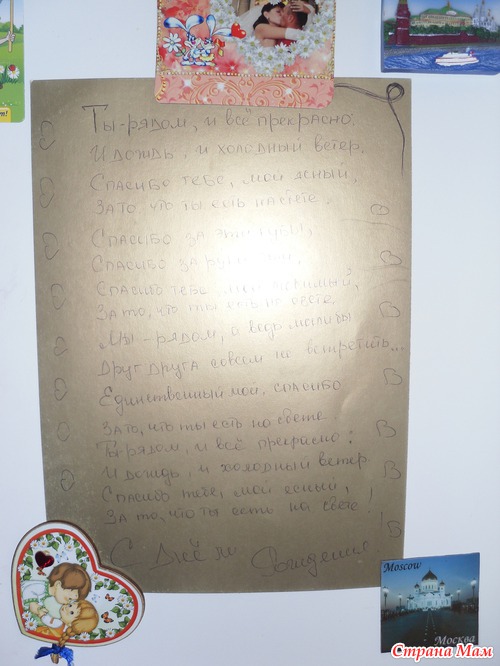 Ты-рядом, и всё прекрасно:
И дождь, и холодный ветер.
Спасибо тебе, мой ясный,
За то что ты есть на свете.
Спасибо за эти губы,
Спасибо за руки эти,
Спасибо тебе, мой любимый,
За то, что ты есть на свете.
Мы-рядом, а ведь могли бы
Друг друга совсем не встретить...
Единственный мой, спасибо
За то, что ты есть на свете.
Ты-рядом, и всё прекрасно:
И дождь, и холодный ветер.
Спасибо тебе, мой ясный,
За то, что ты есть на свете!
С Днём Рождения!
Moscow
Москва
Страна Мам